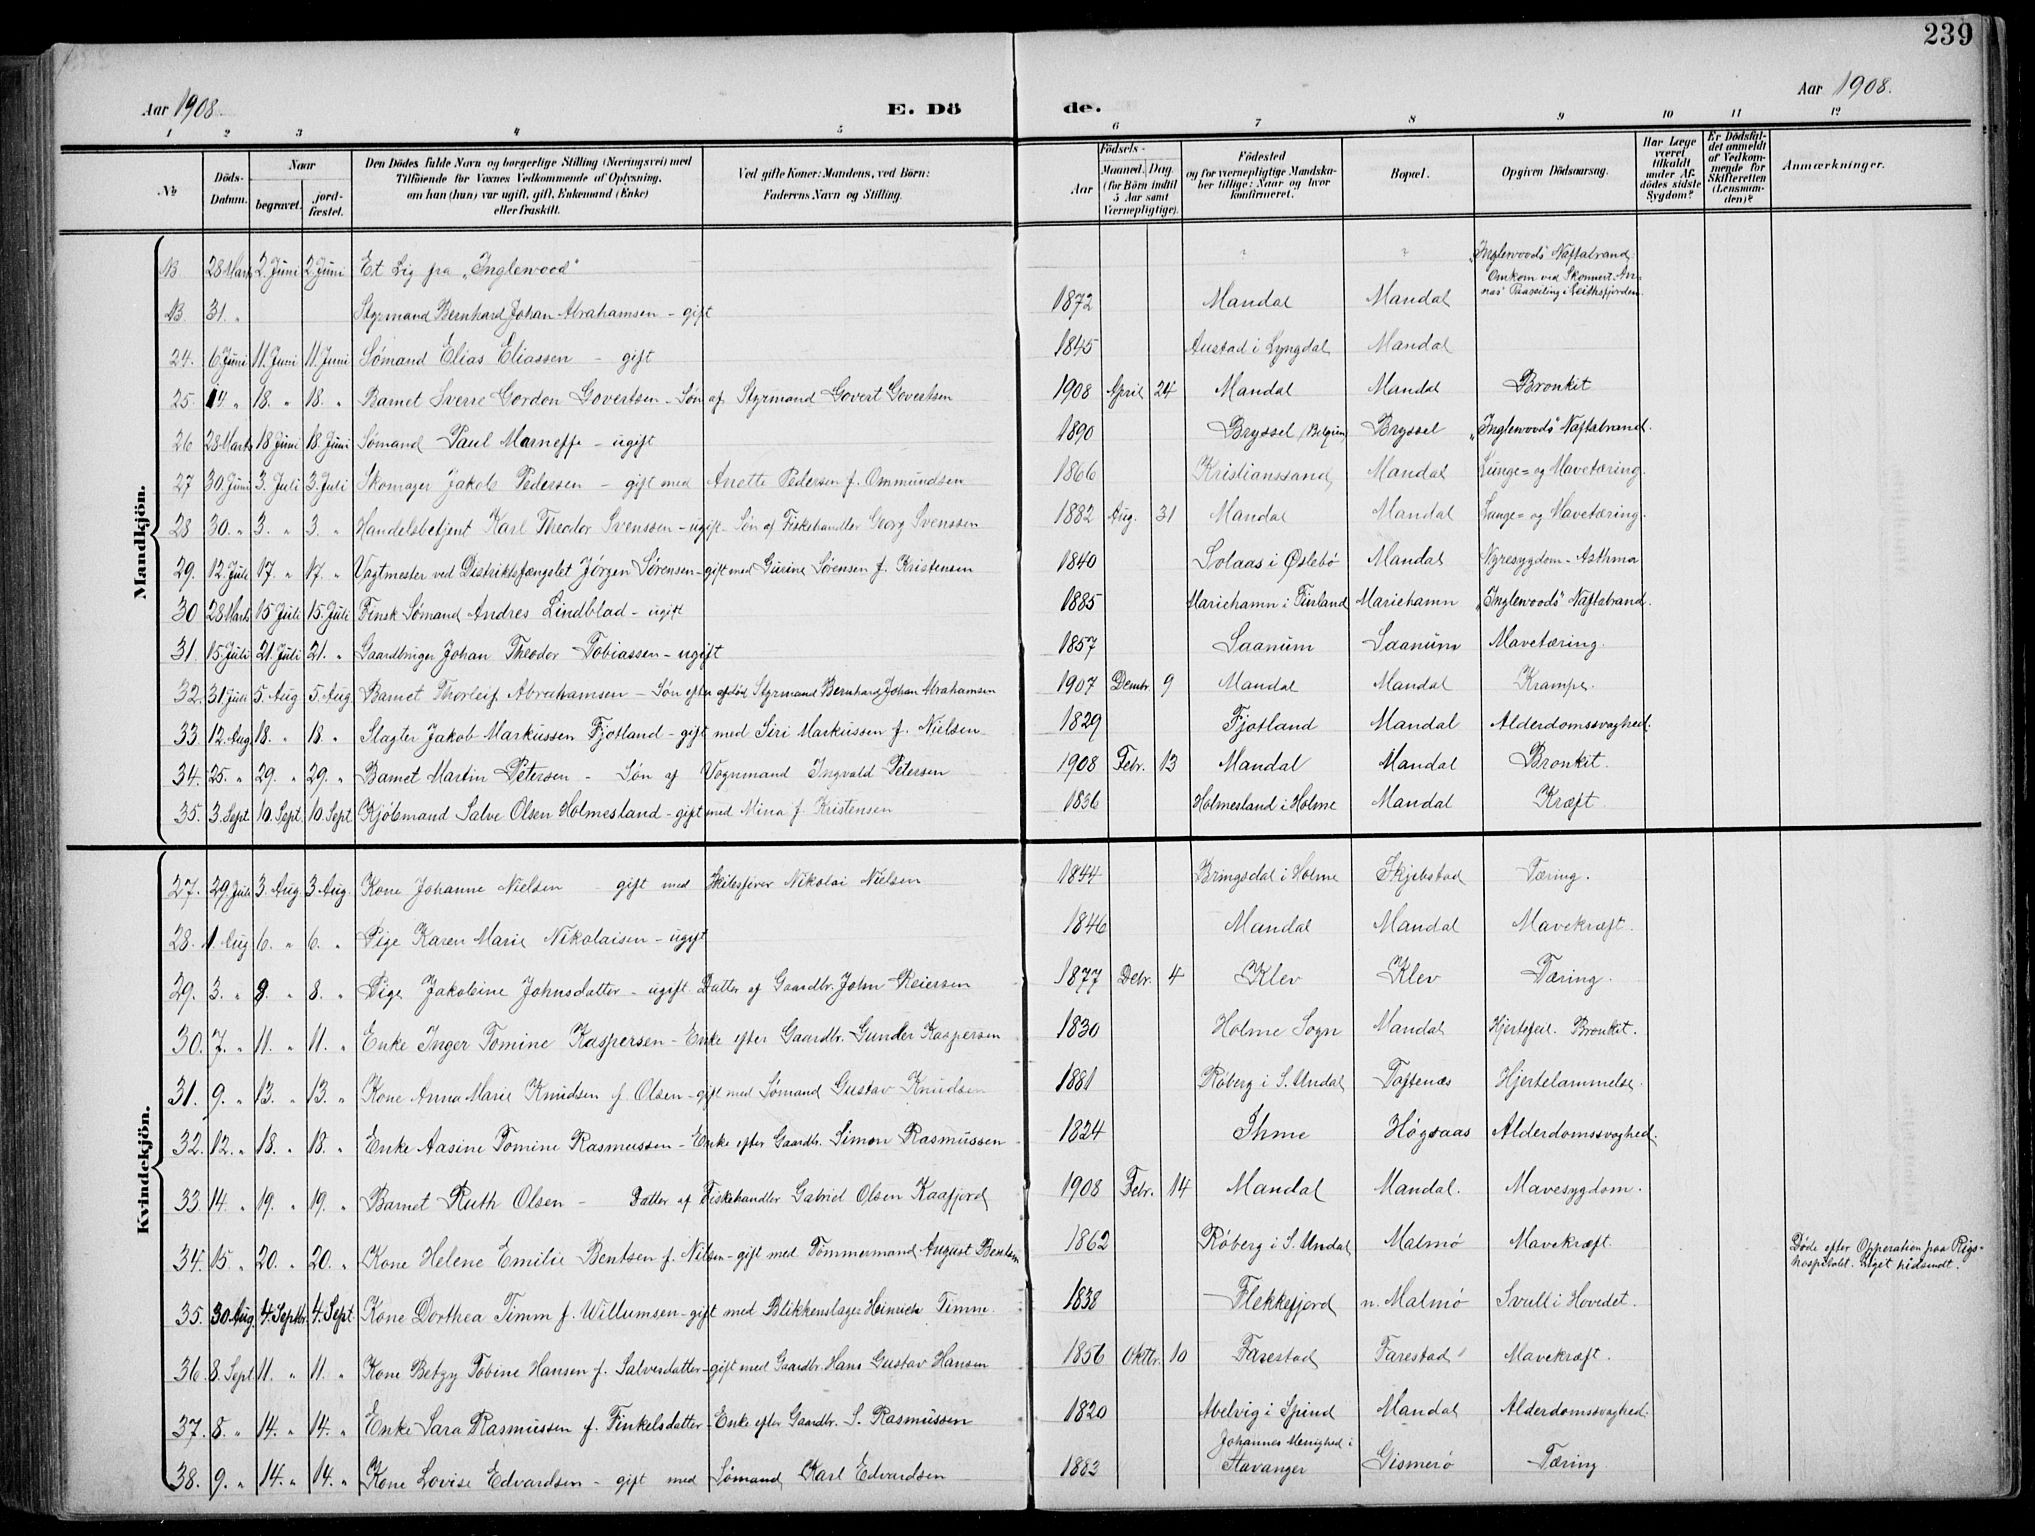 239
Aar 1908.
E. Dö de.
Aar 1908.
1 2 3 4 5 6 7 8 9 10 11 12
No
Döds-Datum.
Naar
begravet.
jord-fæstet.
Den Dödes fulde Navn og borgerlige Stilling (Næringsvei) med
Tilföiende for Voxnes Vedkommende af Oplysning,
om han (hun) var ugift, gift, Enkemand (Enke)
eller fraskilt.
Ved gifte Koner: Mandens, ved Börn:
Faderens Navn og Stilling.
Födsels-
Aar
Maaned. Dag.
(for Börn indtil
5 Aar samt
Værnepligtige).
Födested
og for værnepligtige Mandska-
ber tillige: Naar og hvor
konfirmeret.
Bopæl.
Opgiven Dödsaarsag.
Har Læge
været
tilkaldt
under Af-
dödes sidste
Sygdom?
Er Dödsfal-
det anmeldt
af Vedkom-
mende for
Skifteretten
(Lensman-
den)?
Anmærkninger.
Mandkjön.
NB 28 Marts 2. Juni 2. Juni Et Lig fra "Inglewood" ? ? "Inglewoods" Naftabrand
NB 31. " Styrmand Bernhard Johan Abrahamsen - gift 1872 Mandal Mandal Omkom ved Skonnert "An-
nas" Paaseiling i Leithsfjorden.
24. 6 Juni 11. Juni 11. Juni Sømand Elias Eliassen - gift 1845 Austad i Lyngdal Mandal
25. 14 " 18. " 18. " Barnet Sverre Gordon Govertsen - Søn af Styrmand Govert Govertsen 1908 April 24 Mandal Mandal Bronkit
26 28 Marts 18 Juni 18. Juni Sømand Paul Marneffe - ugift 1890 Bryssel (Belgien) Bryssel "Inglewoods" Naftabrand.
27 30 Juni 3. Juli 3. Juli Skomager Jakob Pedersen - gift med Anette Pedersen f. Ommundsen 1866 Kristianssand Mandal Lunge= og Mavetæring.
28 30. " 3. " 3. " Handelsbetjent Karl Theodor Svenssen - ugift - Søn af Fiskehandler Georg Svenssen 1882 Aug. 31 Mandal Mandal Lunge= og Mavetæring.
29. 12 Juli 17. " 17. " Vagtmester ved Distriktsfængslet Jørgen Sørensen - gift med Gurine Sørensen f. Kristensen 1840 Solaas i Øslebø Mandal Nyresygdom - Asthma
30 28 Marts 15 Juli 15. Juli Finsk Sømand Andres Lindblad - ugift 1885 Mariehamn i Finland Mariehamn "Inglewoods" Naftabrand.
31. 15. Juli 21. Juli 21. " Gaardbruger Johan Theodor Tobiassen - ugift 1857 Saanum Saanum Mavetæring.
32. 31. Juli 5. Aug 5. Aug Barnet Thorleif Abrahamsen - Søn efter afdød Styrmand Bernhard Johan Abrahamsen 1907 Dembr. 9 Mandal Mandal Krampe.
33 12. Aug 18. " 18. " Slagter Jakob Markussen Fjotland - gift med Siri Markussen f. Nielsen 1829 Fjotland Mandal Alderdomssvaghed.
34. 25. " 29. " 29. " Barnet Martin Petersen - Søn af Vognmand Ingvald Petersen 1908 Febr. 13 Mandal Mandal Bronkit.
35. 3. Sept 10. Sept. 10. Sept Kjøbmand Salve Olsen Holmesland - gift med Mina f. Kristensen 1836 Holmesland i Holme Mandal Kræft.
Kvindekjön.
27. 29 Juli 3. Aug 3 Aug. Kone Johanne Nielsen - gift med Skibsfører Nikolai Nielsen 1844 Bringsdal i Holme Skjebstad Tæring.
28. 1. Aug 6. " 6. " Pige Karen Marie Nikolaisen - ugift 1846 Mandal Mandal Mavekræft.
29. 3. " 8. " 8. " Pige Jakobine Johnsdatter - ugift Datter af Gaardbr. John Reiersen 1877 Debr. 4 Klev Klev Tæring.
30. 7. " 11. " 11. " Enke Inger Tomine Kaspersen - Enke efter Gaardbr. Gunder Kaspersen 1830 Holme Sogn Mandal Hjertefeil. Bronkit.
31. 9. " 13. " 13. " Kone Anna Marie Knudsen f. Olsen - gift med Sømand Gustav Knudsen 1881 Røberg i S. Undal Toftenæs Hjertelammelse.
32. 12. " 18. " 18. " Enke Aasine Tomine Rasmussen - Enke efter Gaardbr. Simon Rasmussen 1824 Ihme Høgsaas Alderdomssvaghed.
33 14. " 19. " 19. " Barnet Ruth Olsen - Datter af Fiskehandler Gabriel Olsen Kaafjord 1908 Febr. 14 Mandal Mandal. Mavesygdom.
34. 15. " 20. " 20. " Kone Helene Emilie Bentsen f. Nilsen - gift med Tømmermand August Bentsen 1862 Røberg i S. Undal Malmø Mavekræft. Døde efter Opperation paa Rigs-
hospitalet. Liget hidsendt.
35. 30 Aug 4. Septbr. 4. Sept. Kone Dorthea Timm f. Willumsen - gift med Blikkenslager Heinrich Timm. 1838 Flekkefjord n. Malmø Svull i Hovedet.
36. 8. Sept 11. " 11. " Kone Betzy Tobine Hansen f. Salvesdatter - gift med Gaardbr. Hans Gustav Hansen 1856 Oktbr. 10 Farestad Farestad Mavekræft.
37. 8. " 14. " 14. " Enke Sara Rasmussen f. Finkelsdatter - Enke efter Gaardbr. S. Rasmussen 1820 Melvig i Spind Mandal Alderdomssvaghed.
38. 9. " 14. " 14. " Kone Lovise Edvardsen - gift med Sømand Karl Edvardsen 1883 Johannes Menighed i
Stavanger Gismerø Tæring